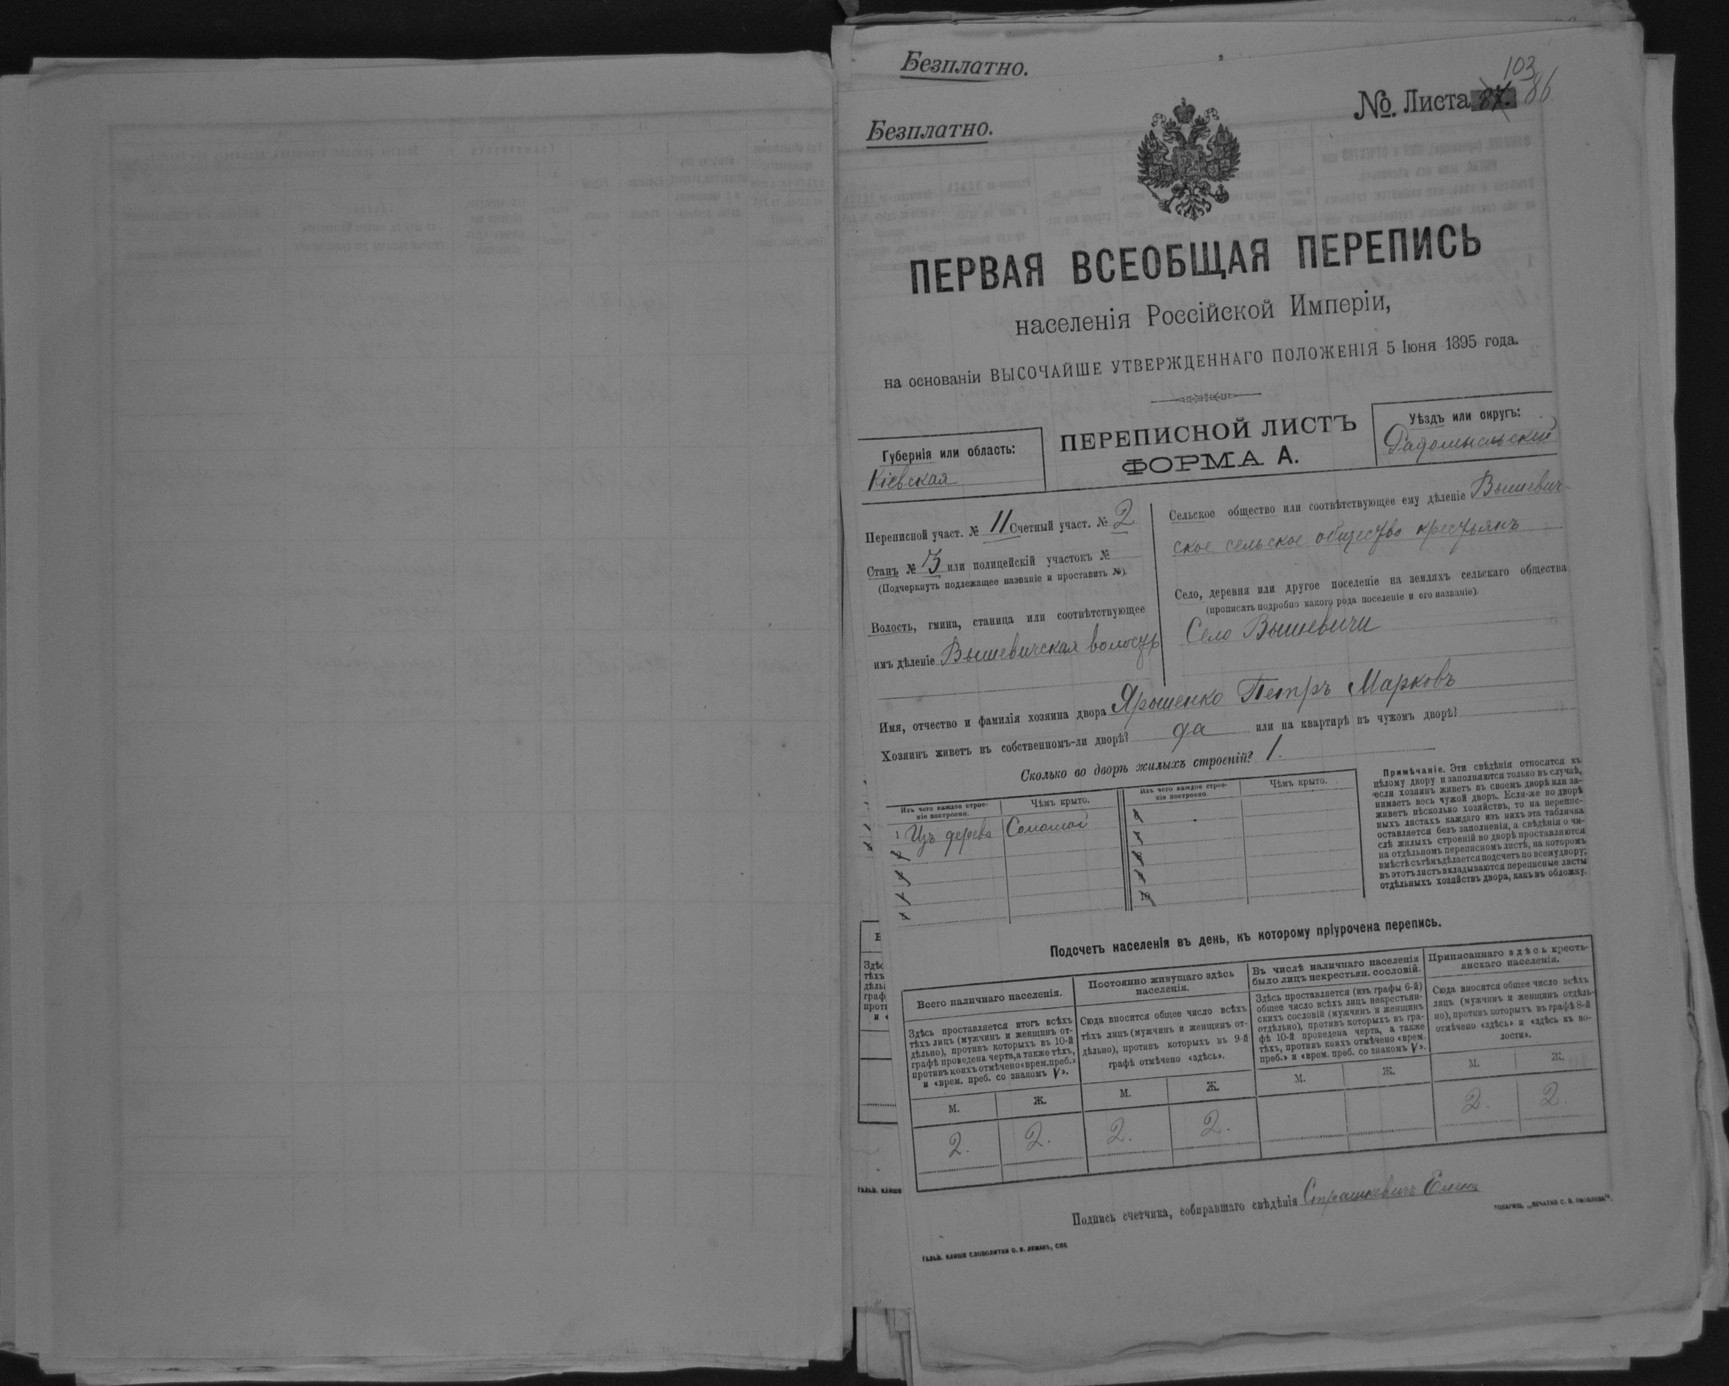 Безплатно.
Безплатно.
103
№. Листа 86
ПЕРВАЯ ВСЕОБЩАЯ ПЕРЕПИСЬ
населенія Россійской Имперіи,
на основаніи ВЫСОЧАЙШЕ УТВЕРЖДЕННАГО ПОЛОЖЕНІЯ 5 Іюня 1895 года.
ПЕРЕПИСНОЙ ЛИСТЪ
ФОРМА А.
Губернія или область:
Кіевская
Уѣздъ или округъ:
Радомысльскій
Переписной участ. № 11 Счетный участ. № 2
Станъ № 3 или полицейскій участокъ №
(Подчеркнуть подлежащее названіе и проставить №).
Волость, гмина, станица или соотвѣтствующее
имъ дѣленіе Вышевичская волость
Сельское общество или соотвѣтствующее ему дѣленіе Вышевич-
ское сельское общество крестьянъ
Село, деревня или другое поселеніе на земляхъ сельскаго общества
(прописать подробно какого рода поселеніе и его названіе).
Село Вышевичи
Имя, отчество и фамилія хозяина двора Ярошенко Петръ Марковъ
Хозяинъ живетъ въ собственномъ-ли дворѣ? да или на квартирѣ въ чужомъ дворѣ?
Сколько во дворѣ жилыхъ строеній? 1.
Изъ чего каждое строе-
ніе построено.
Чѣмъ крыто.
1 Изъ дерева Соломой
Изъ чего каждое строе-
ніе построено.
Чѣмъ крыто.
10
Примѣчаніе. Эти свѣдѣнія относятся къ
цѣлому двору и заполняются только въ случаѣ,
если хозяинъ живетъ въ своемъ дворѣ или за-
нимаетъ весь чужой дворъ. Если-же во дворѣ
живетъ нѣсколько хозяйствъ, то на перепис-
ныхъ листахъ каждаго изъ нихъ эта табличка
оставляется безъ заполненія, а свѣдѣнія о чи-
слѣ жилыхъ строеній во дворѣ проставляются
на отдѣльномъ переписномъ листѣ, на которомъ
вмѣстѣ съ тѣмъ дѣлается подсчетъ по всему двору;
въ этотъ листъ вкладываются переписные листы
отдѣльныхъ хозяйствъ двора, какъ въ обложку.
Подсчетъ населенія въ день, къ которому пріурочена перепись.
Всего наличнаго населенія.
Здѣсь проставляется итогъ всѣхъ
тѣхъ лицъ (мужчинъ и женщинъ от-
дѣльно), противъ которыхъ въ 10-й
графѣ проведена черта, а также тѣхъ,
противъ коихъ отмѣчено «врем. преб.»
и «врем. преб. со знакомъ V».
М. Ж.
2. 2.
Постоянно живущаго здѣсь
населенія.
Сюда вносится общее число всѣхъ
тѣхъ лицъ (мужчинъ и женщинъ от-
дѣльно), противъ которыхъ въ 9-й
графѣ отмѣчено «здѣсь».
М. Ж.
2. 2.
Въ числѣ наличнаго населенія
было лицъ некрестьян. сословій.
Здѣсь проставляется (изъ графы 6-й)
общее число всѣхъ лицъ некрестьян-
скихъ сословій (мужчинъ и женщинъ
отдѣльно), противъ которыхъ въ гра-
фѣ 10-й проведена черта, а также
тѣхъ, противъ коихъ отмѣчено «врем.
преб.» и «врем. преб. со знакомъ V».
М. Ж.
Приписаннаго здѣсь кресть-
янскаго населенія.
Сюда вносится общее число всѣхъ
лицъ (мужчинъ и женщинъ отдѣль-
но), противъ которыхъ въ графѣ 8-й
отмѣчено «здѣсь» и «здѣсь къ во-
лости».
М. Ж.
2. 2
Подпись счетчика, собиравшаго свѣдѣнія Страшкевичъ
ГАЛЬВ. КЛИШЕ СЛОВОЛИТНИ О. И. ЛЕМАНЪ, СПБ.
ТОВАРИЩ. „ПЕЧАТНЯ С. П. ЯКОВЛЕВА".
ГАЛЬВ. КЛИШЕ